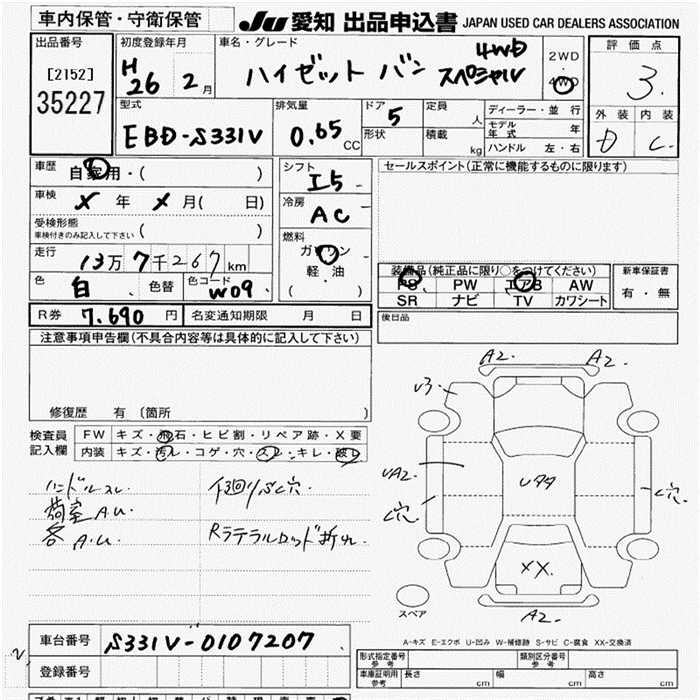 車内保管・守衛保管
JU 愛知 出品申込書 JAPAN USED CAR DEALERS ASSOCIATION
出品番号
[2152]
35227
初度登録年月
H 26 2月
車名・グレード
ハイゼットバン 4WD スペシャル
2WD
4WD
評価点
3.
外装 内装
D C
型式
EBD-S331V
排気量
0.65 CC
ドア 5
形状
定員 人
積載 kg
ディーラー・並行
モデル年式 年
ハンドル 左・右
車歴 自家用・( )
車検 X 年 X 月( 日)
受検形態
車検付きのみ記入して下さい ( )
走行 13万7千267km
色 白 色替 色コード W09
シフト
I5
冷房
AC
燃料
ガソリン
軽・油
( )
セールスポイント(正常に機能するものに限ります)
装備品(純正品に限り○をつけてください)
PS PW エアB AW
SR ナビ TV カワシート
新車保証書
有・無
R券 7,690 円 名変通知期限 月 日
後日品
注意事項申告欄(不具合内容等は具体的に記入して下さい)
修復歴 有 〔箇所 〕
検査員記入欄
FW キズ・飛石・ヒビ割・リペア跡・X要
内装 キズ・汚レ・コゲ・穴・スレ・キレ・破レ
ハンドルスレ
荷室 A.U.
各 A.U.
下廻りサビ穴.
Rラテラルロッド折れ.
A2. A2.
U3.
UA2.
C穴.
Uタタ
C穴.
XX.
A2.
スペア
A-キズ E-エクボ U-凹み W-補修跡 S-サビ C-腐食 XX-交換済
車台番号 S331V-0107207
登録番号
形式指定番号 参考
類別区分番号 参考
車庫証明用 参考 長さ cm 幅 cm 高さ cm